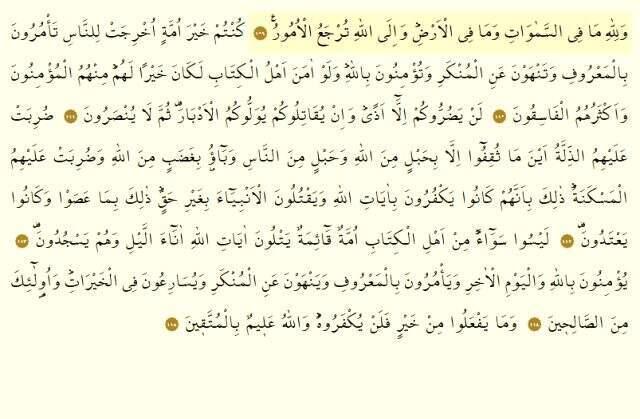 وَلِلّٰهِ مَا فِى السَّمٰوَاتِ وَمَا فِى الْاَرْضِۜ وَاِلَى اللّٰهِ تُرْجَعُ الْاُمُورُ۟ ﴿١٠٩﴾ كُنْتُمْ خَيْرَ اُمَّةٍ اُخْرِجَتْ لِلنَّاسِ تَأْمُرُونَ
بِالْمَعْرُوفِ وَتَنْهَوْنَ عَنِ الْمُنْكَرِ وَتُؤْمِنُونَ بِاللّٰهِۜ وَلَوْ اٰمَنَ اَهْلُ الْكِتَابِ لَكَانَ خَيْرًا لَهُمْۜ مِنْهُمُ الْمُؤْمِنُونَ
وَاَكْثَرُهُمُ الْفَاسِقُونَ ﴿١١٠﴾ لَنْ يَضُرُّوكُمْ اِلَّٓا اَذًىۜ وَاِنْ يُقَاتِلُوكُمْ يُوَلُّوكُمُ الْاَدْبَارَ۠ ثُمَّ لَا يُنْصَرُونَ ﴿١١١﴾ ضُرِبَتْ
عَلَيْهِمُ الذِّلَّةُ اَيْنَ مَا ثُقِفُٓوا اِلَّا بِحَبْلٍ مِنَ اللّٰهِ وَحَبْلٍ مِنَ النَّاسِ وَبَٓاؤُ۫ بِغَضَبٍ مِنَ اللّٰهِ وَضُرِبَتْ عَلَيْهِمُ
الْمَسْكَنَةُۜ ذٰلِكَ بِاَنَّهُمْ كَانُوا يَكْفُرُونَ بِاٰيَاتِ اللّٰهِ وَيَقْتُلُونَ الْاَنْبِيَٓاءَ بِغَيْرِ حَقٍّۜ ذٰلِكَ بِمَا عَصَوْا وَكَانُوا
يَعْتَدُونَ۠ ﴿١١٢﴾ لَيْسُوا سَوَٓاءًۜ مِنْ اَهْلِ الْكِتَابِ اُمَّةٌ قَٓائِمَةٌ يَتْلُونَ اٰيَاتِ اللّٰهِ اٰنَٓاءَ الَّيْلِ وَهُمْ يَسْجُدُونَ۠ ﴿١١٣﴾
يُؤْمِنُونَ بِاللّٰهِ وَالْيَوْمِ الْاٰخِرِ وَيَأْمُرُونَ بِالْمَعْرُوفِ وَيَنْهَوْنَ عَنِ الْمُنْكَرِ وَيُسَارِعُونَ فِى الْخَيْرَاتِۜ وَاُو۬لٰٓئِكَ
مِنَ الصَّالِح۪ينَ ﴿١١٤﴾ وَمَا يَفْعَلُوا مِنْ خَيْرٍ فَلَنْ يُكْفَرُوهُۜ وَاللّٰهُ عَل۪يمٌ بِالْمُتَّق۪ينَ ﴿١١٥﴾